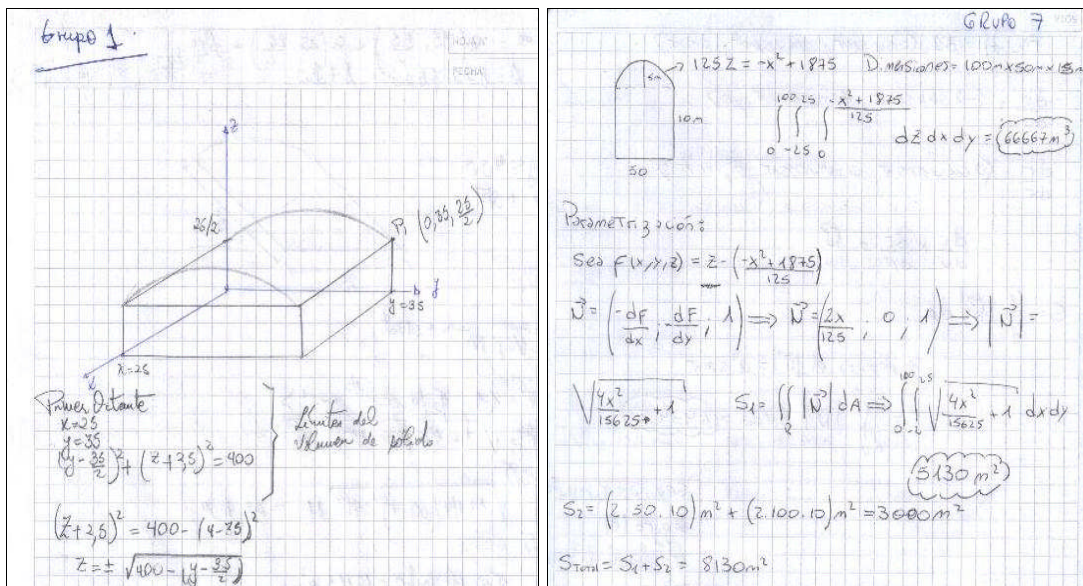 Grupo 1
z
25/2
P₁ (0, 35, 25/2)
y
y=35
x=25
x
Primer Octante
x=25
y=35
(y - 35/2)² + (z+2,5)² = 400
Límites del
volumen de sólido
(z+2,5)² = 400 - (y-35)²
z = ± √400 - (y - 35/2)
GRUPO 7
5m
125Z = -x² + 1875 Dimensiones = 100m x 50m x 15m
10m
50
∫₀¹⁰⁰ ∫₋₂₅²⁵ ∫₀^((-x²+1875)/125) dz dx dy = 66667m³
Parametrización:
Sea F(x,y,z) = z - (-x²+1875/125)
N⃗ = (-dF/dx ; -dF/dy ; 1) ⟹ N⃗ = (2x/125 ; 0 ; 1) ⟹ |N⃗| =
√(4x²/15625 + 1) S₁ = ∬_R |N⃗| dA ⟹ ∫₀¹⁰⁰ ∫₋₂²⁵ √(4x²/15625 + 1) dx dy
5130 m²
S₂ = (2.50.10) m² + (2.100.10) m² = 3000m²
S_Total = S₁ + S₂ = 8130m²